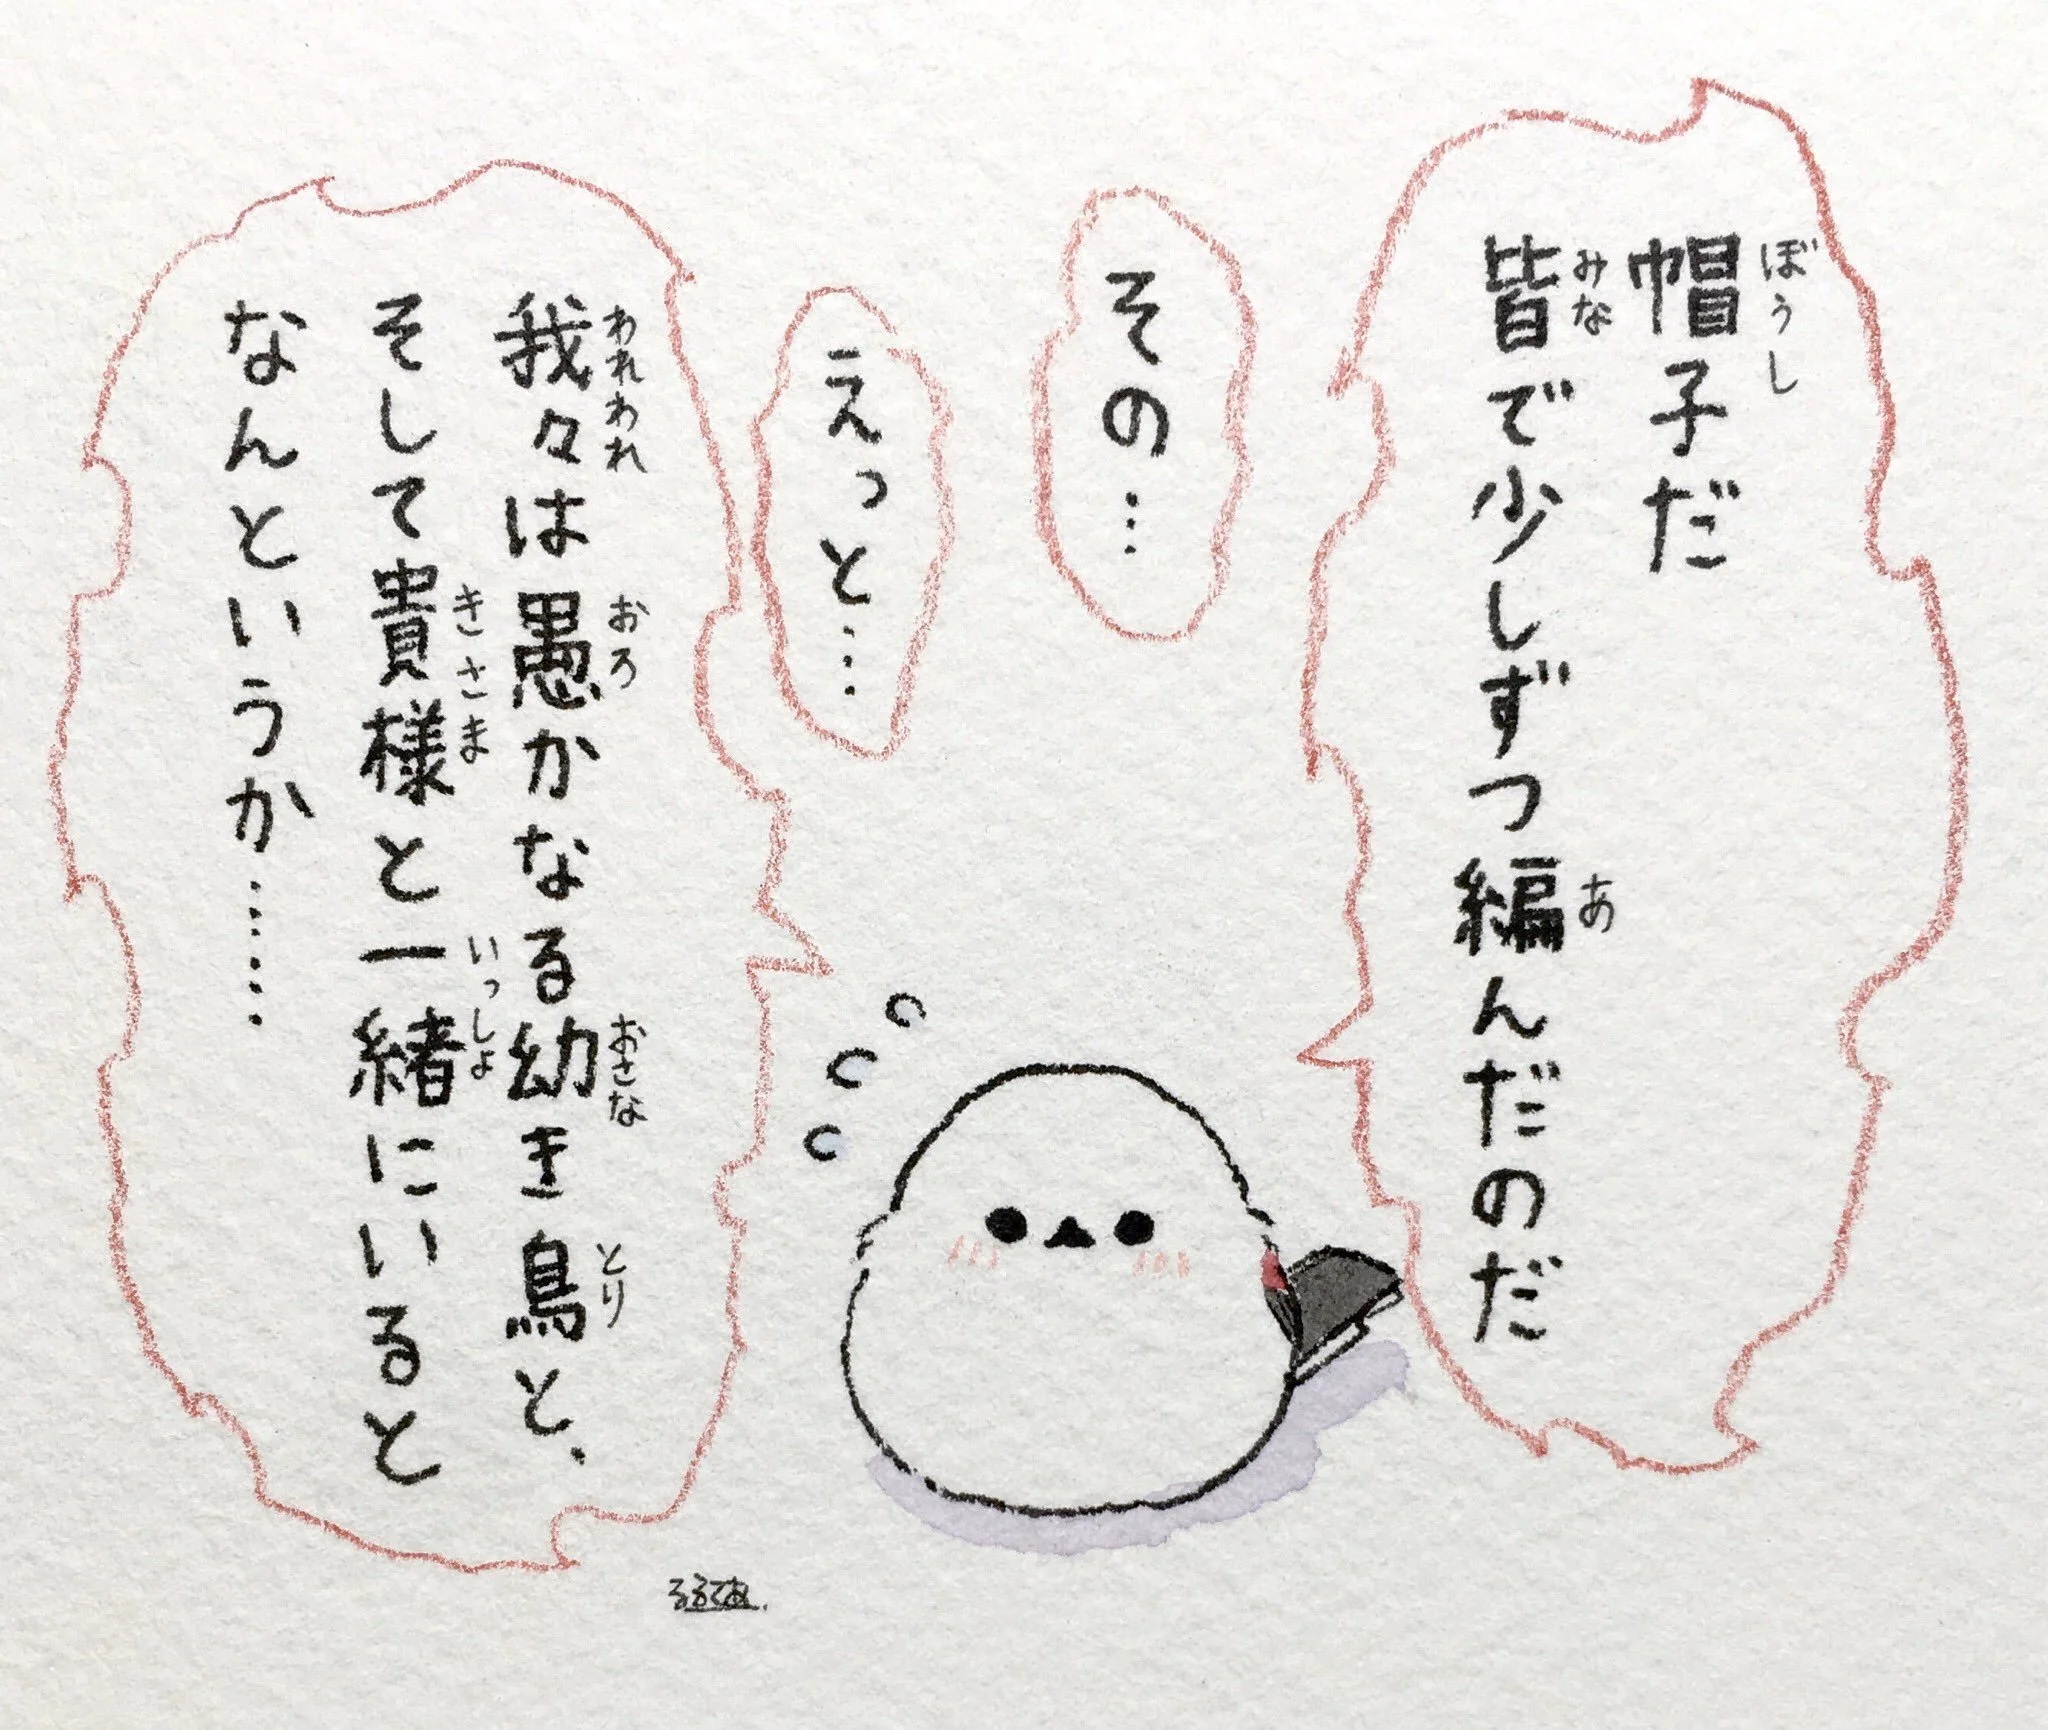 帽子だ
皆で少しずつ編んだのだ
その…
えっと…
我々は愚かなる幼き鳥と、
そして貴様と一緒にいると
なんというか……
るるてあ